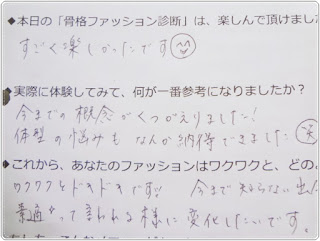 ◆本日の「骨格ファッション診断」は、楽しんで頂けまし
すごく楽しかったです
◆実際に体験してみて、何が一番参考になりましたか?
今までの概念がくつがえりました!
体型の悩みもなんか納得できました(笑
◆これから、あなたのファッションはワクワクと、どの
ワクワクとドキドキです!! 今まで知らない出
素適って言われる様に変化したいです。